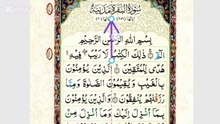 سورة البقرة مدنية
بسم الله الرحمن الرحيم
الم ذلك الكتب لا ريب فيه
هدى للمتقين الذين يؤمنون
بالغيب ويقيمون الصلوة ومما
رزقنهم ينفقون والذين يؤمنون
بما أنزل إليك وما أنزل من